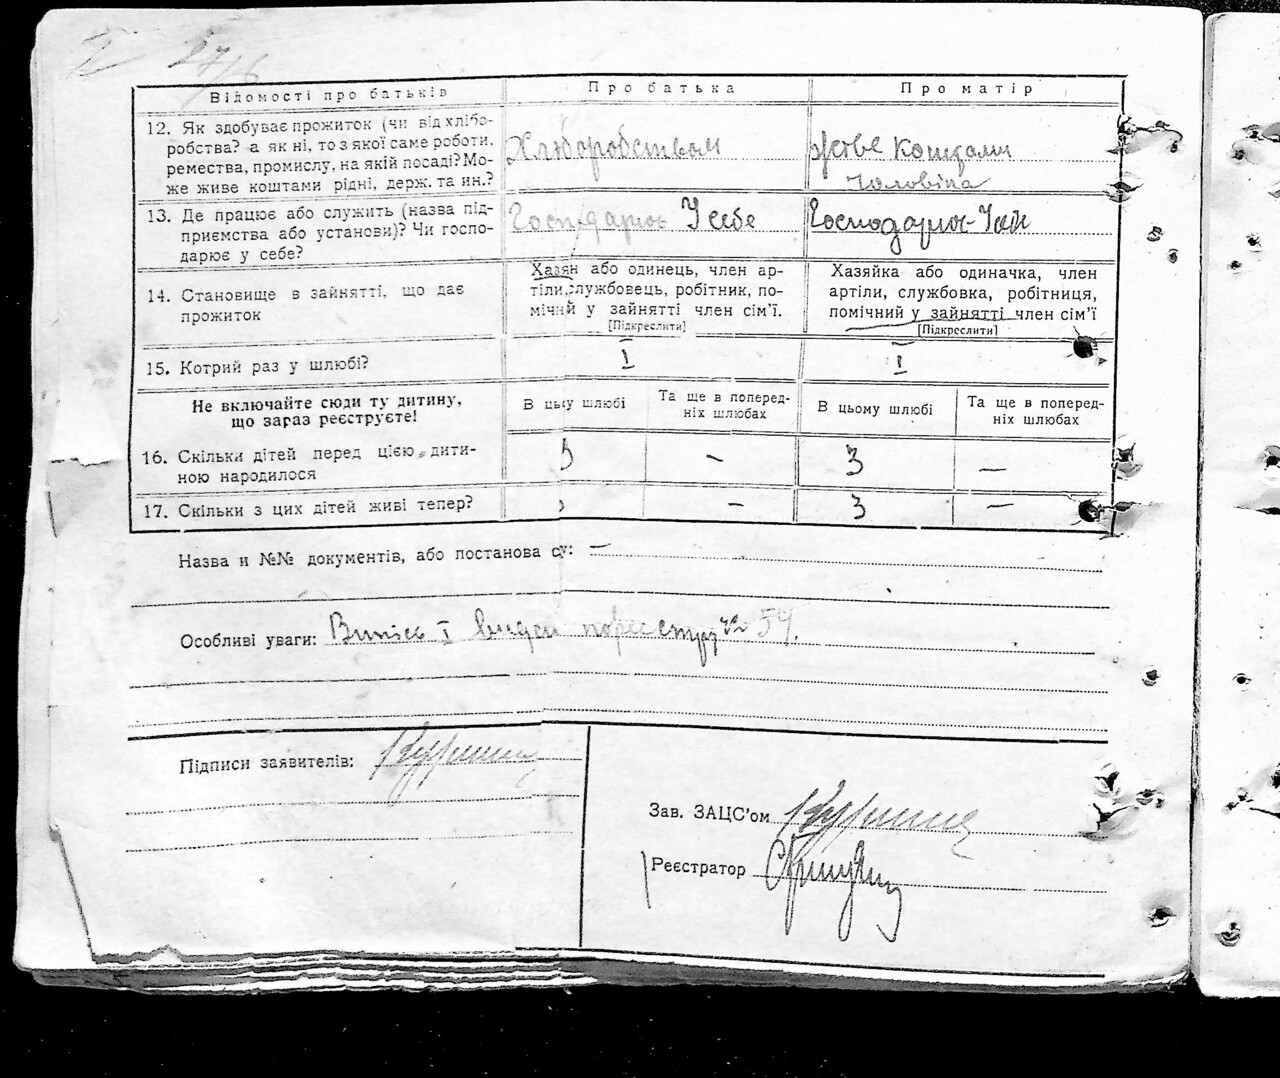 27/6
Відомості про батьків
Про батька
Про матір
12. Як здобуває прожиток (чи від хлібо-
робства? а як ні, то з якої саме роботи,
ремества, промислу, на якій посаді? Мо-
же живе коштами рідні, держ. та ин.?
Хліборобством
коштами
чоловіка
13. Де працює або служить (назва під-
приємства або установи)? Чи госпо-
дарює у себе?
Господарює У себе
Господарює
14. Становище в зайнятті, що дає
прожиток
Хазяїн або одинець, член ар-
тіли, службовець, робітник, по-
мічний у зайнятті член сім'ї.
[Підкреслити]
Хазяйка або одиначка, член
артіли, службовка, робітниця,
помічний у зайнятті член сім'ї
[Підкреслити]
15. Котрий раз у шлюбі?
I
I
Не включайте сюди ту дитину,
що зараз реєструєте!
В цьому шлюбі
Та ще в поперед-
ніх шлюбах
В цьому шлюбі
Та ще в поперед-
ніх шлюбах
16. Скільки дітей перед цією дити-
ною народилося
3 – 3 –
17. Скільки з цих дітей живі тепер?
– 3 –
Назва и №№ документів, або постанова су: –
Особливі уваги: Випис I видан по реєстру №
Підписи заявителів:
Зав. ЗАЦС'ом
Реєстратор